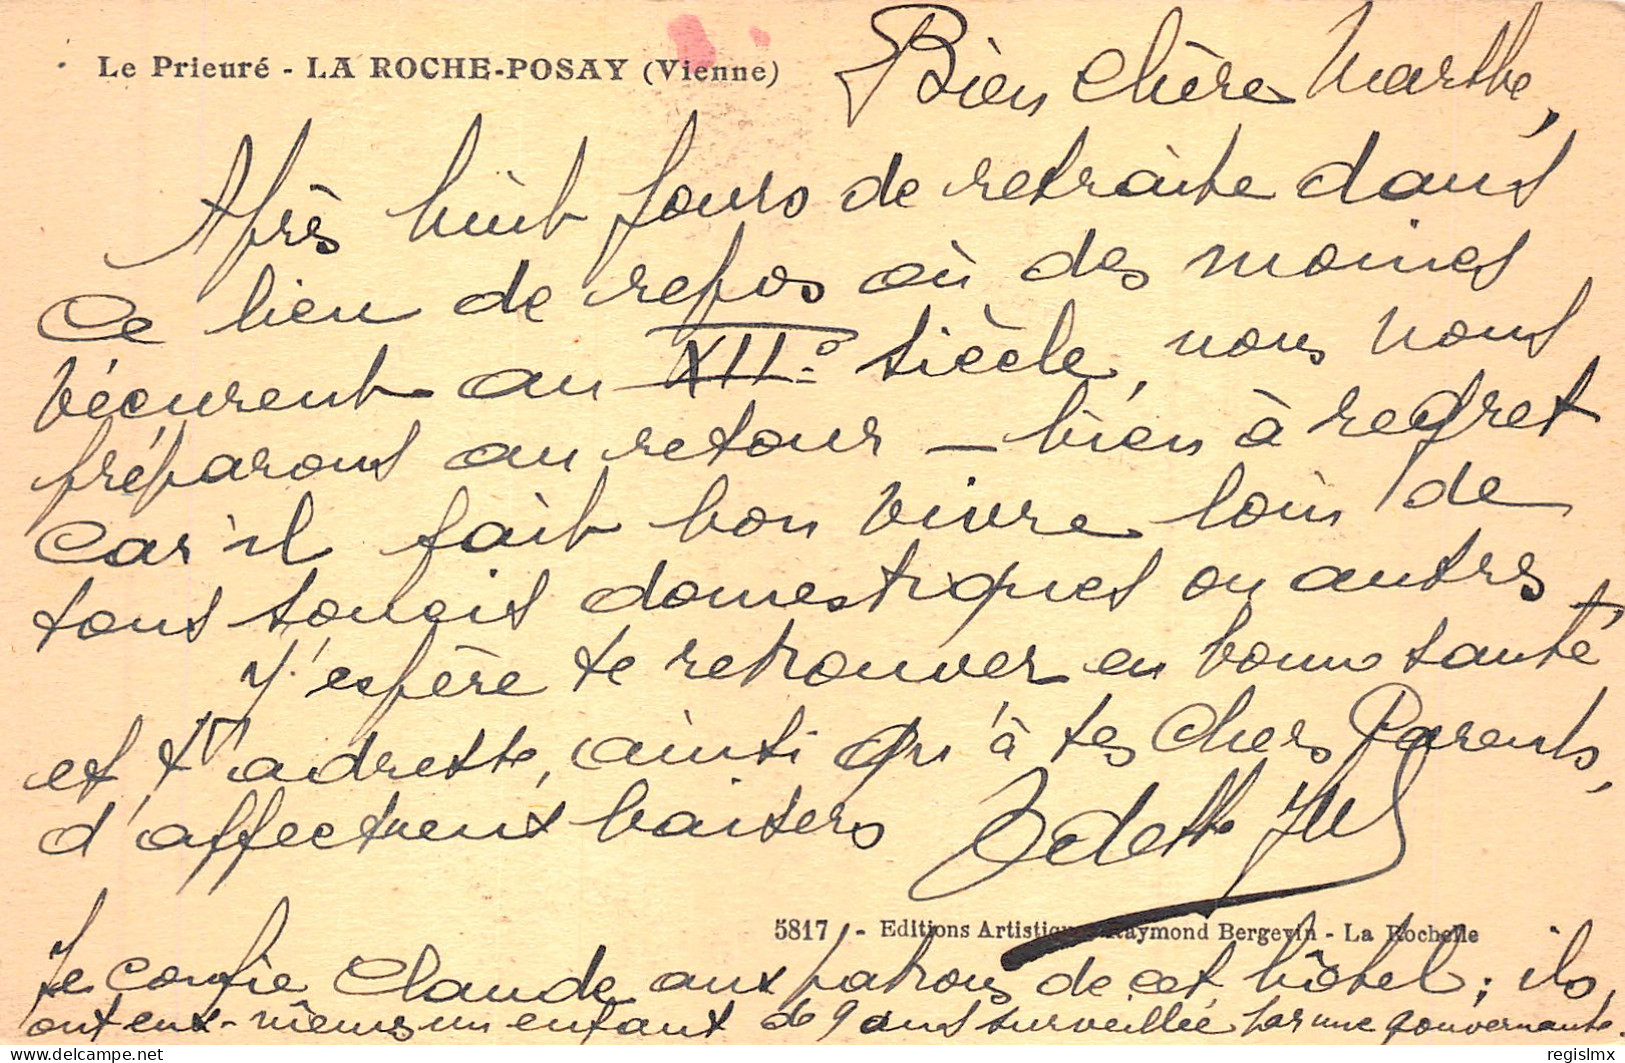 Le Prieuré - LA ROCHE-POSAY (Vienne)
Bien chère Marthe,
Après huit jours de retraite dans
ce lieu de repos où des moines
vécurent au XIIº siècle, nous nous
préparons au retour – bien à regret
car il fait bon vivre loin de
tous soucis domestiques ou autres
J'espère te retrouver en bonne santé,
et t'adresse, ainsi qu'à tes chers Parents,
d'affectueux baisers Odette
5817 - Editions Artistiques Raymond Bergevin - La Rochelle
Je confie Claude aux patrons de cet hôtel ; ils
ont eux-mêmes un enfant de 9 ans surveillée par une gouvernante.
regislmx